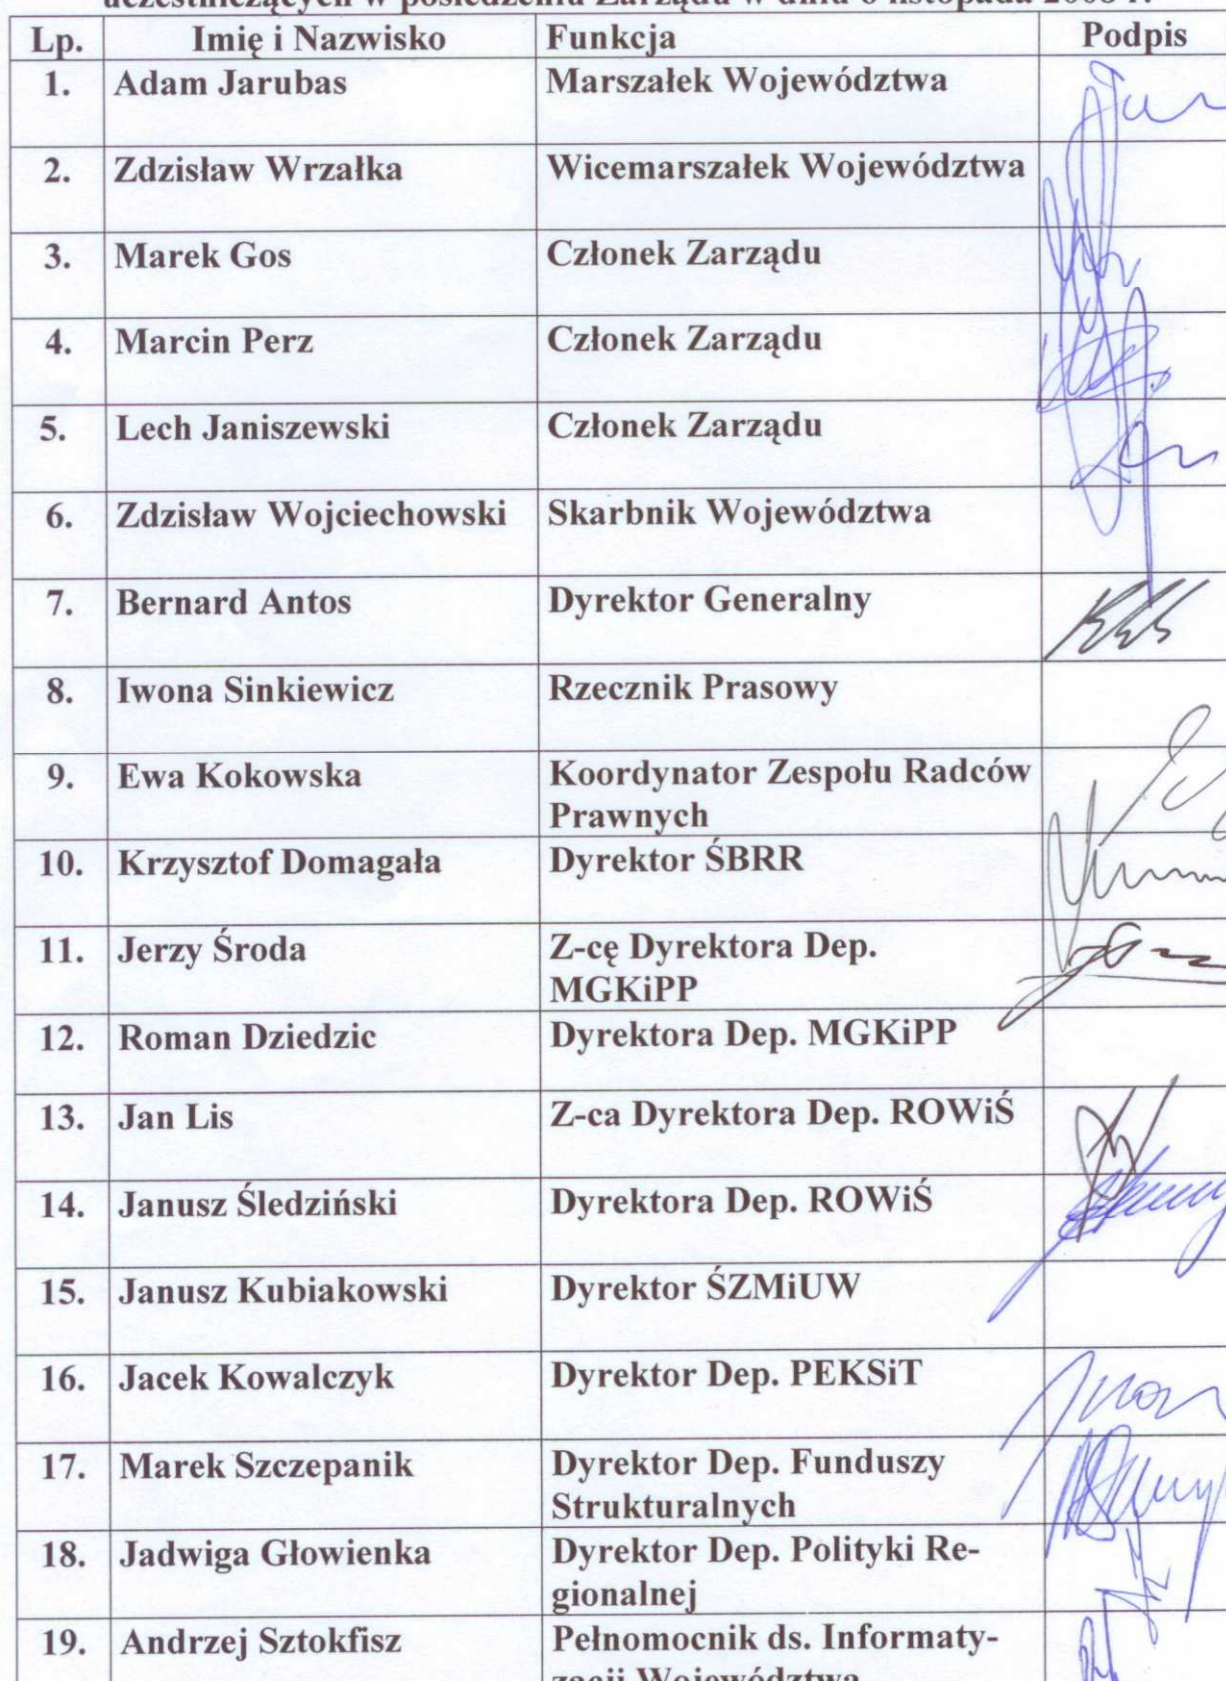 uczestniczących w posiedzeniu Zarządu w dniu 6 listopada 2008 r.
Lp. Imię i Nazwisko Funkcja Podpis
1. Adam Jarubas Marszałek Województwa
2. Zdzisław Wrzałka Wicemarszałek Województwa
3. Marek Gos Członek Zarządu
4. Marcin Perz Członek Zarządu
5. Lech Janiszewski Członek Zarządu
6. Zdzisław Wojciechowski Skarbnik Województwa
7. Bernard Antos Dyrektor Generalny
8. Iwona Sinkiewicz Rzecznik Prasowy
9. Ewa Kokowska Koordynator Zespołu Radców
Prawnych
10. Krzysztof Domagała Dyrektor ŚBRR
11. Jerzy Środa Z-cę Dyrektora Dep.
MGKiPP
12. Roman Dziedzic Dyrektora Dep. MGKiPP
13. Jan Lis Z-ca Dyrektora Dep. ROWiŚ
14. Janusz Śledziński Dyrektora Dep. ROWiŚ
15. Janusz Kubiakowski Dyrektor ŚZMiUW
16. Jacek Kowalczyk Dyrektor Dep. PEKSiT
17. Marek Szczepanik Dyrektor Dep. Funduszy
Strukturalnych
18. Jadwiga Głowienka Dyrektor Dep. Polityki Re-
gionalnej
19. Andrzej Sztokfisz Pełnomocnik ds. Informaty-
zacji Województwa